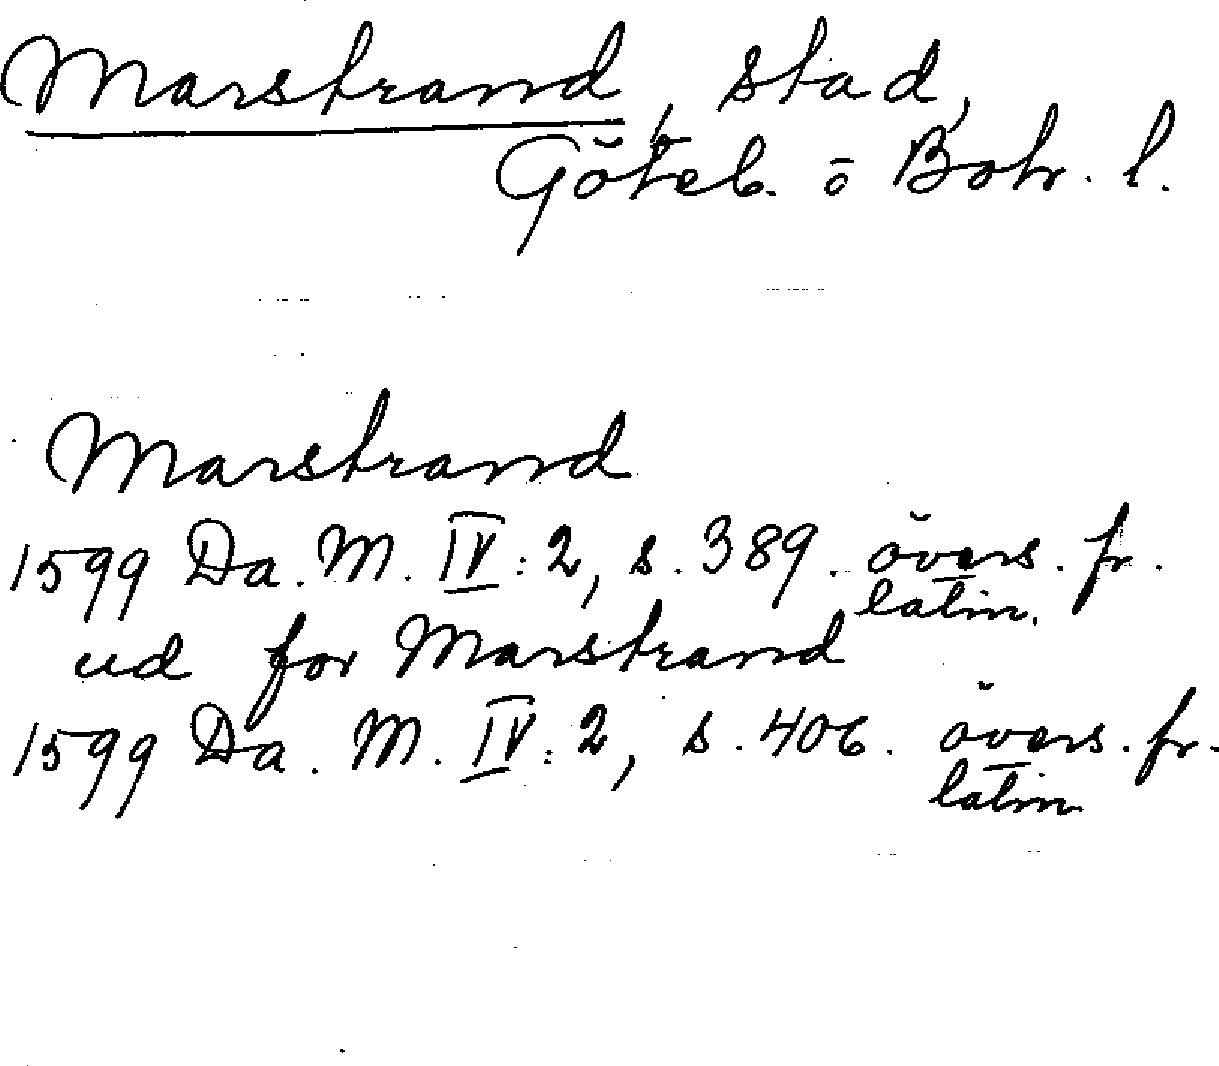 Marstrand, stad,
Göteb. o Boh. l.
Marstrand
1599 Da. M. IV:2, s. 389. övers. fr.
latin.
ud for Marstrand
1599 Da. M. IV:2, s. 406. övers. fr.
latin